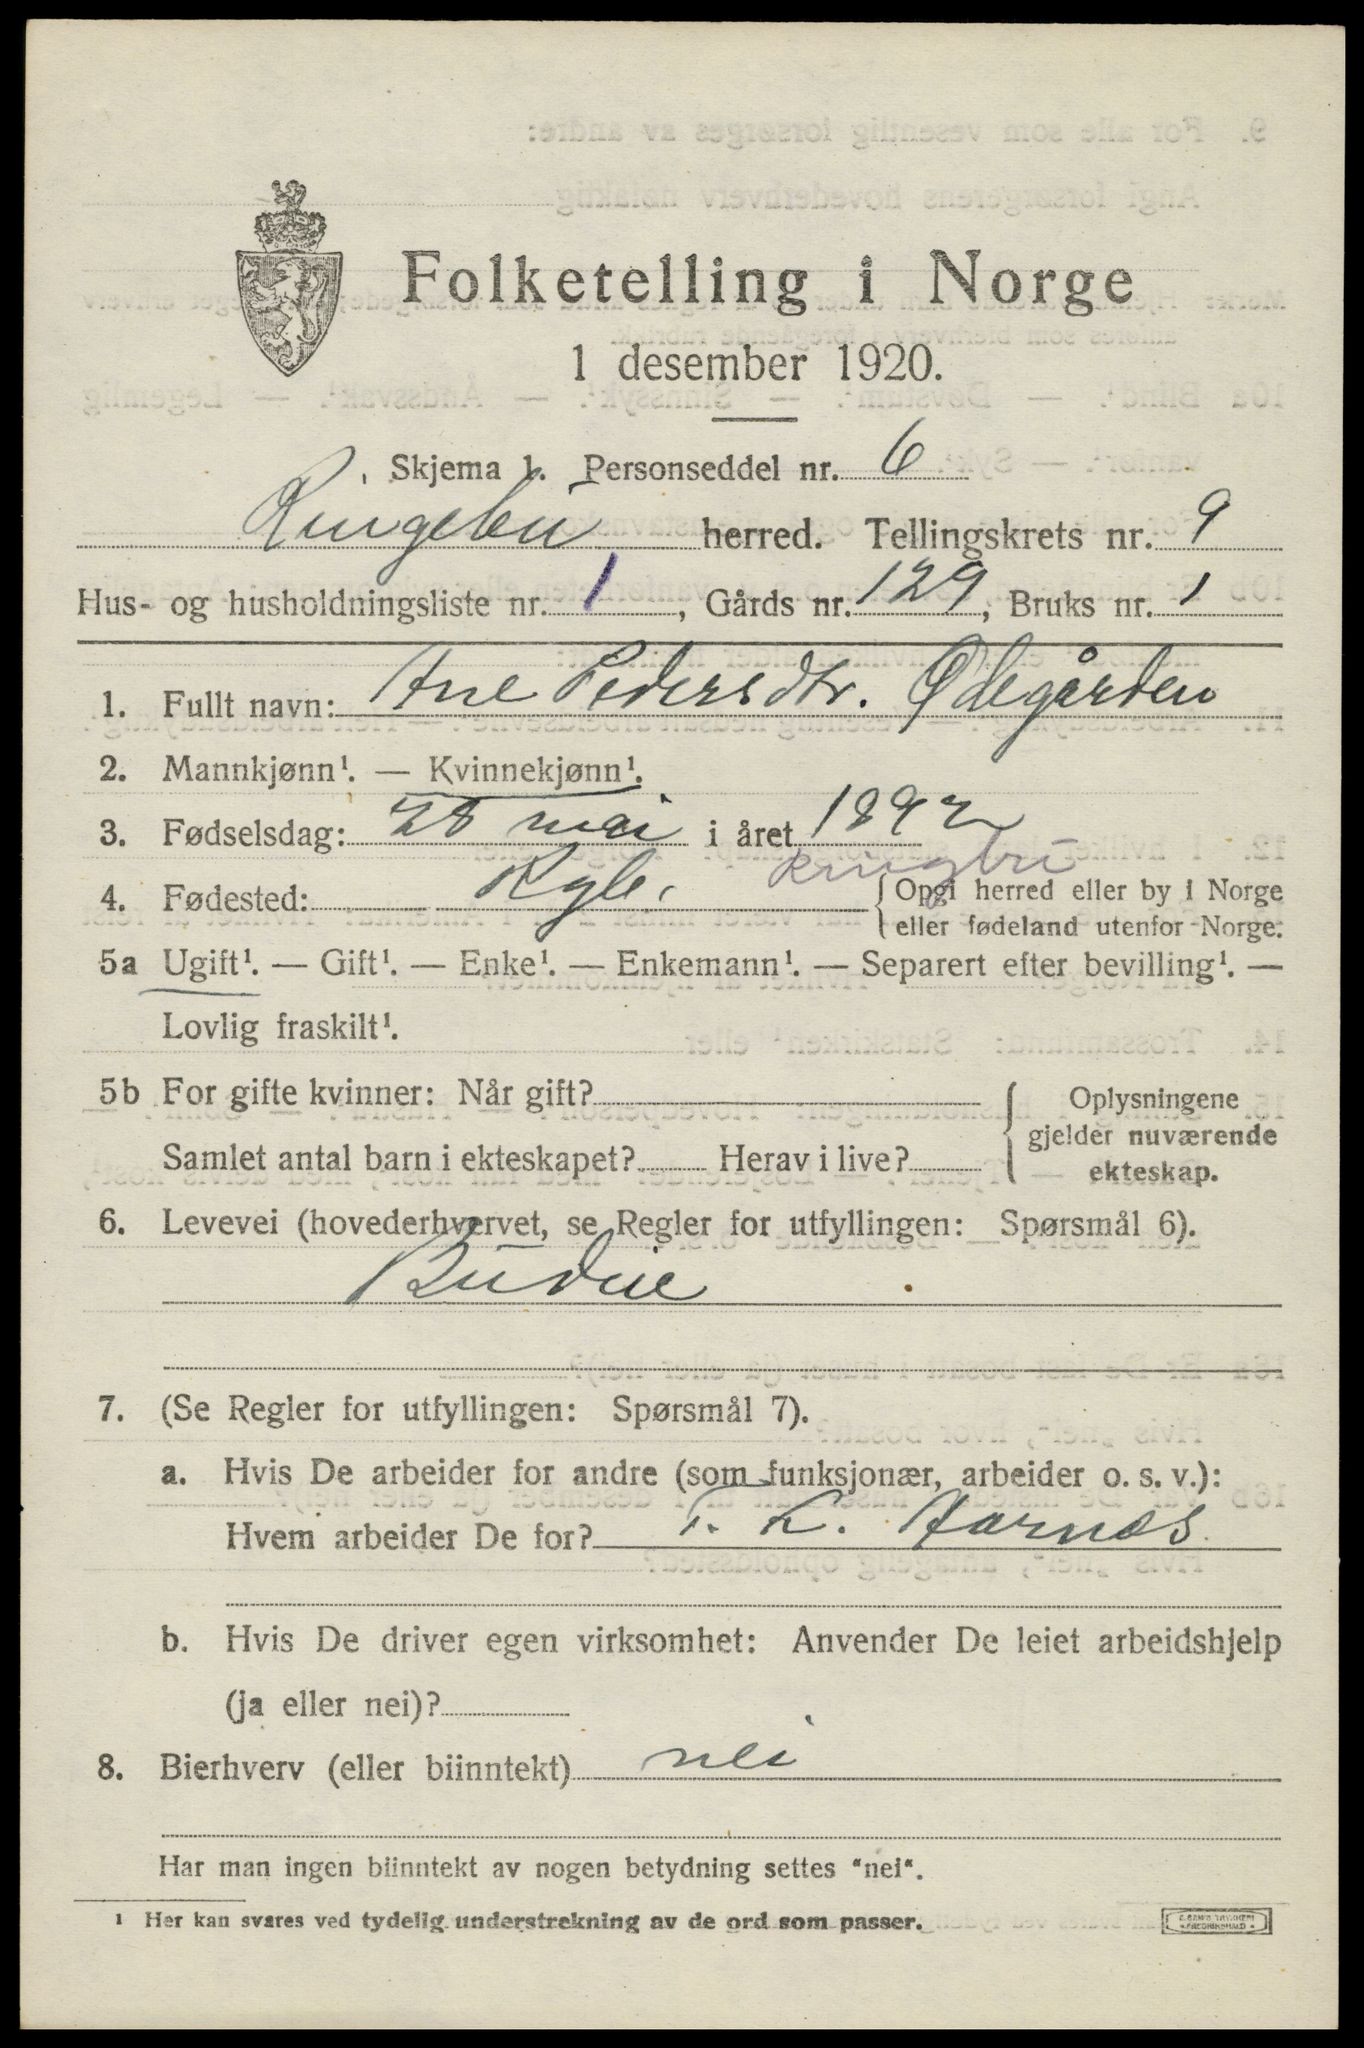 Folketelling i Norge
1 desember 1920.
Skjema 1. Personseddel nr. 6
Ringebu herred. Tellingskrets nr. 9
Hus- og husholdningsliste nr. 1, Gårds nr. 129, Bruks nr. 1
1. Fullt navn: Ane Pedersdtr. Ødegården
2. Mannkjønn¹. — Kvinnekjønn¹.
3. Fødselsdag: 28 mai i året 1892
Ringebu
4. Fødested: Rgb. Opgi herred eller by i Norge
eller fødeland utenfor Norge.
5a Ugift¹. — Gift¹. — Enke¹. — Enkemann¹. — Separert efter bevilling¹. —
Lovlig fraskilt¹.
5b For gifte kvinner: Når gift? Oplysningene
gjelder nuværende
Samlet antal barn i ekteskapet? Herav i live? ekteskap.
6. Levevei (hovederhvervet, se Regler for utfyllingen: Spørsmål 6).
Budeie
7. (Se Regler for utfyllingen: Spørsmål 7).
a. Hvis De arbeider for andre (som funksjonær, arbeider o. s. v.):
Hvem arbeider De for? T. K. Aarnes
b. Hvis De driver egen virksomhet: Anvender De leiet arbeidshjelp
(ja eller nei)?
8. Bierhverv (eller biinntekt) nei
Har man ingen biinntekt av nogen betydning settes "nei".
¹ Her kan svares ved tydelig understrekning av de ord som passer.